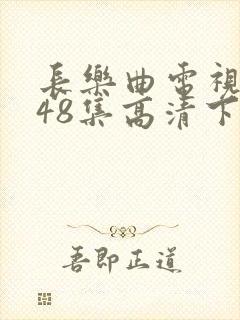 長樂曲電視
48集高清下
吾即正道